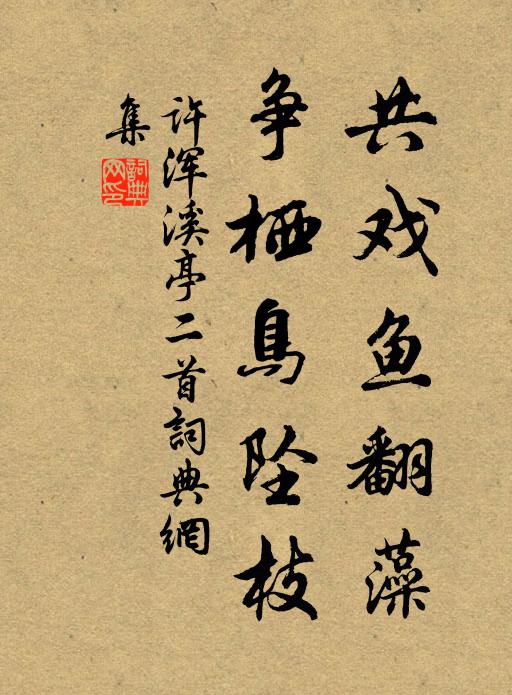 共戏鱼翻藻
争栖鳥坠枝
许浑溪亭二首詞典網
集
詞典
网印